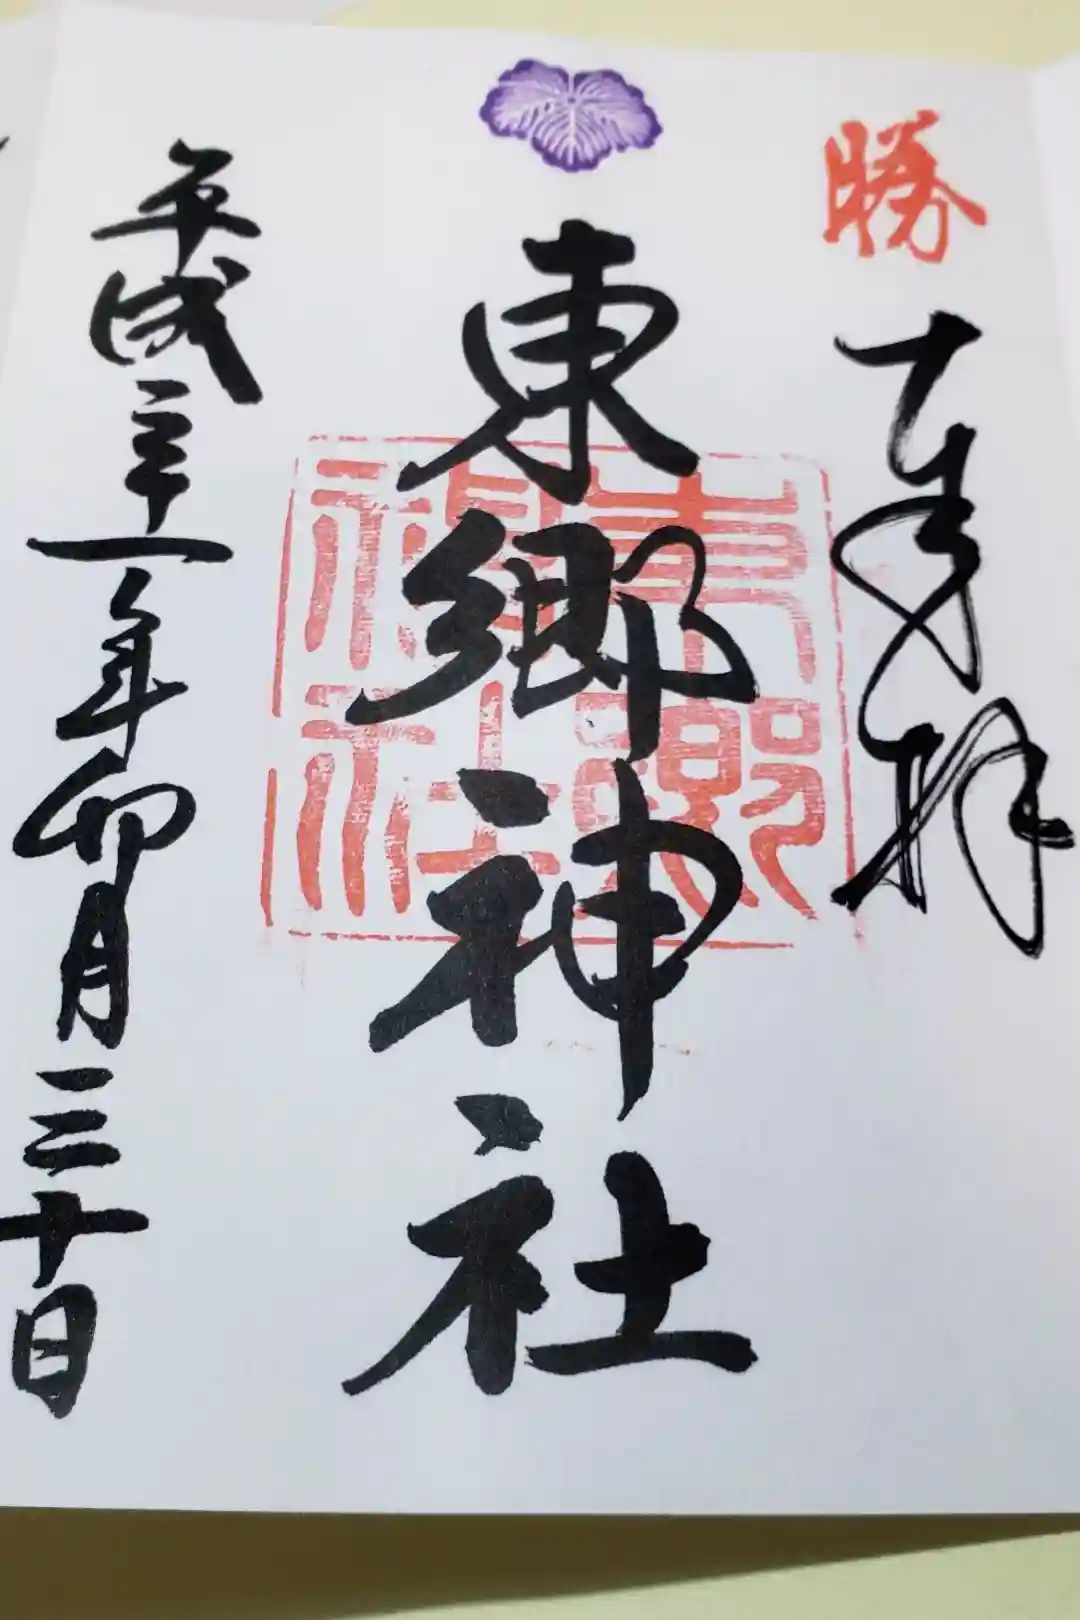 勝
奉拝
東郷神社
東郷神社
平成三十一年卯月三十日